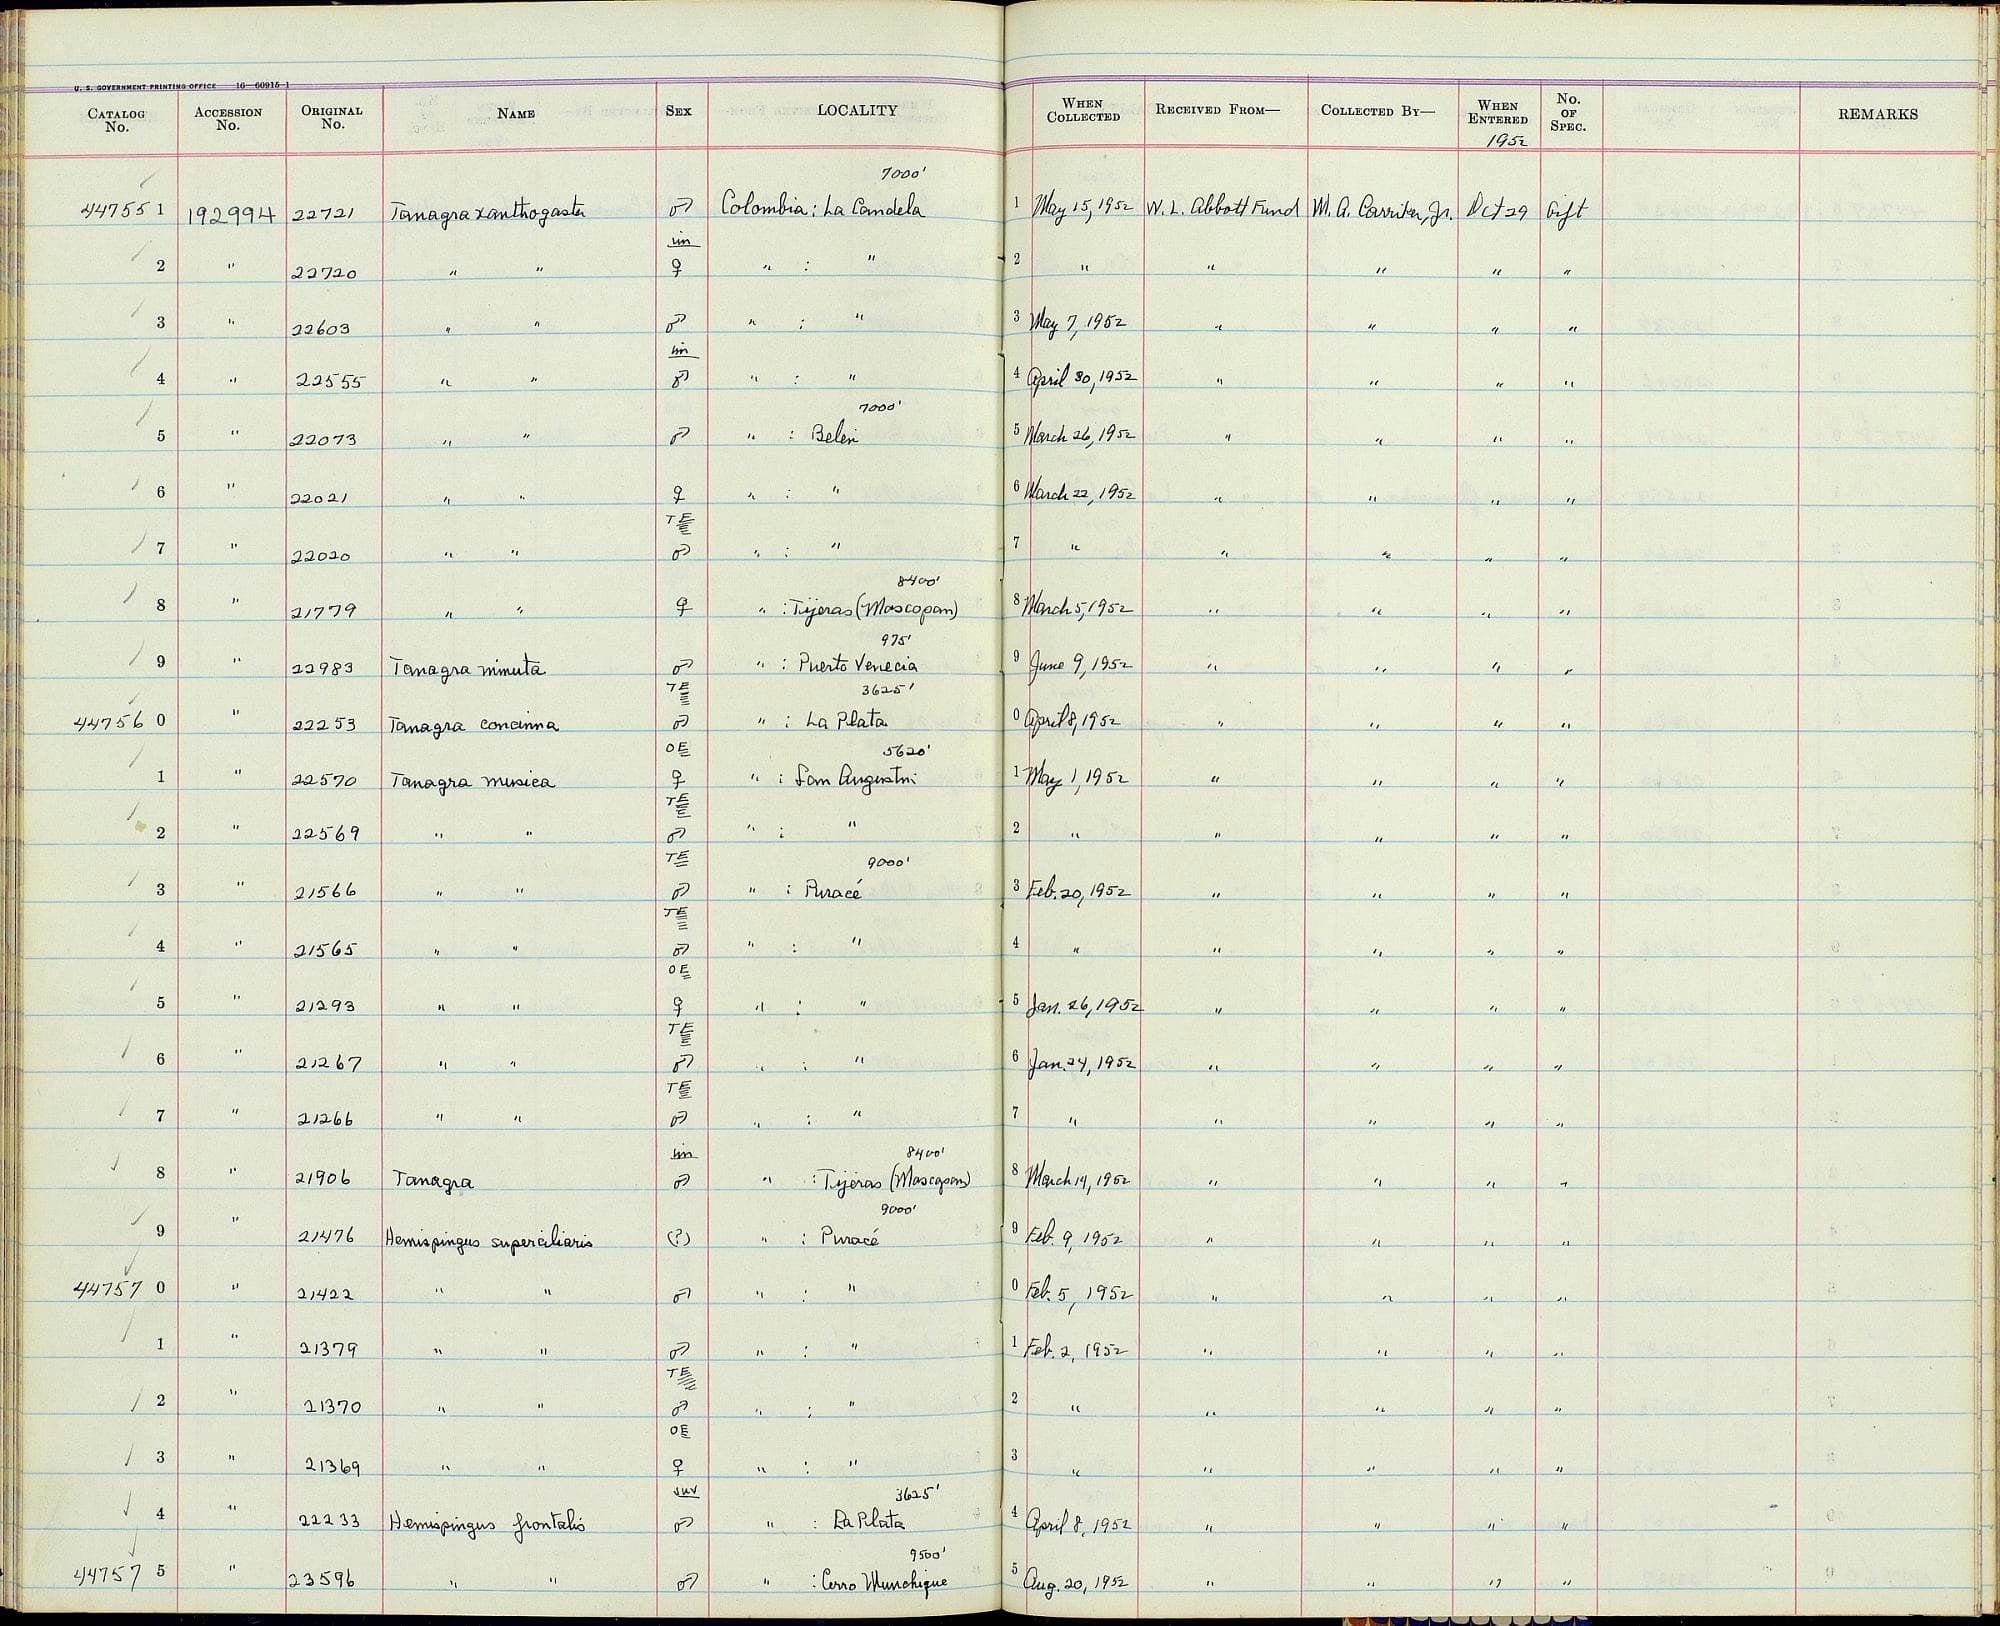 U. S. GOVERNMENT PRINTING OFFICE 16—60915-1
CATALOG No. ACCESSION No. ORIGINAL No. NAME SEX LOCALITY WHEN COLLECTED RECEIVED FROM— COLLECTED BY— WHEN ENTERED No. OF SPEC. REMARKS
1952
7000'
44755 1 192994 22721 Tanagra xanthogaster ♂ Colombia: La Candela 1 May 15, 1952 W. L. Abbott Fund M. A. Carriker, Jr. Oct 29 Gift
im
2 " 22720 " " ♀ " : " 2 " " " " "
3 " 22603 " " ♂ " : " 3 May 7, 1952 " " " "
im
4 " 22555 " " ♂ " : " 4 April 30, 1952 " " " "
7000'
5 " 22073 " " ♂ " : Belen 5 March 26, 1952 " " " "
6 " 22021 " " ♀ " : " 6 March 22, 1952 " " " "
TE
7 " 22020 " " ♂ " : " 7 " " " " "
8400'
8 " 21779 " " ♀ " : Tijeras (Moscopan) 8 March 5, 1952 " " " "
975'
9 " 22983 Tanagra minuta ♂ " : Puerto Venecia 9 June 9, 1952 " " " "
TE 3625'
44756 0 " 22253 Tanagra concinna ♂ " : La Plata 0 April 8, 1952 " " " "
OE 5620'
1 " 22570 Tanagra musica ♀ " : San Augustin 1 May 1, 1952 " " " "
TE
2 " 22569 " " ♂ " : " 2 " " " " "
TE 9000'
3 " 21566 " " ♂ " : Puracé 3 Feb. 20, 1952 " " " "
TE
4 " 21565 " " ♂ " : " 4 " " " " "
OE
5 " 21293 " " ♀ " : " 5 Jan. 26, 1952 " " " "
TE
6 " 21267 " " ♂ " : " 6 Jan. 24, 1952 " " " "
TE
7 " 21266 " " ♂ " : " 7 " " " " "
im 8400'
8 " 21906 Tanagra ♂ " : Tijeras (Moscopan) 8 March 14, 1952 " " " "
9000'
9 " 21476 Hemispingus superciliaris (?) " : Puracé 9 Feb. 9, 1952 " " " "
44757 0 " 21422 " " ♂ " : " 0 Feb. 5, 1952 " " " "
1 " 21379 " " ♂ " : " 1 Feb. 2, 1952 " " " "
TE
2 " 21370 " " ♂ " : " 2 " " " " "
OE
3 " 21369 " " ♀ " : " 3 " " " " "
juv 3625'
4 " 22233 Hemispingus frontalis ♂ " : La Plata 4 April 8, 1952 " " " "
9500'
44757 5 " 23596 " " ♂ " : Cerro Munchique 5 Aug. 20, 1952 " " " "